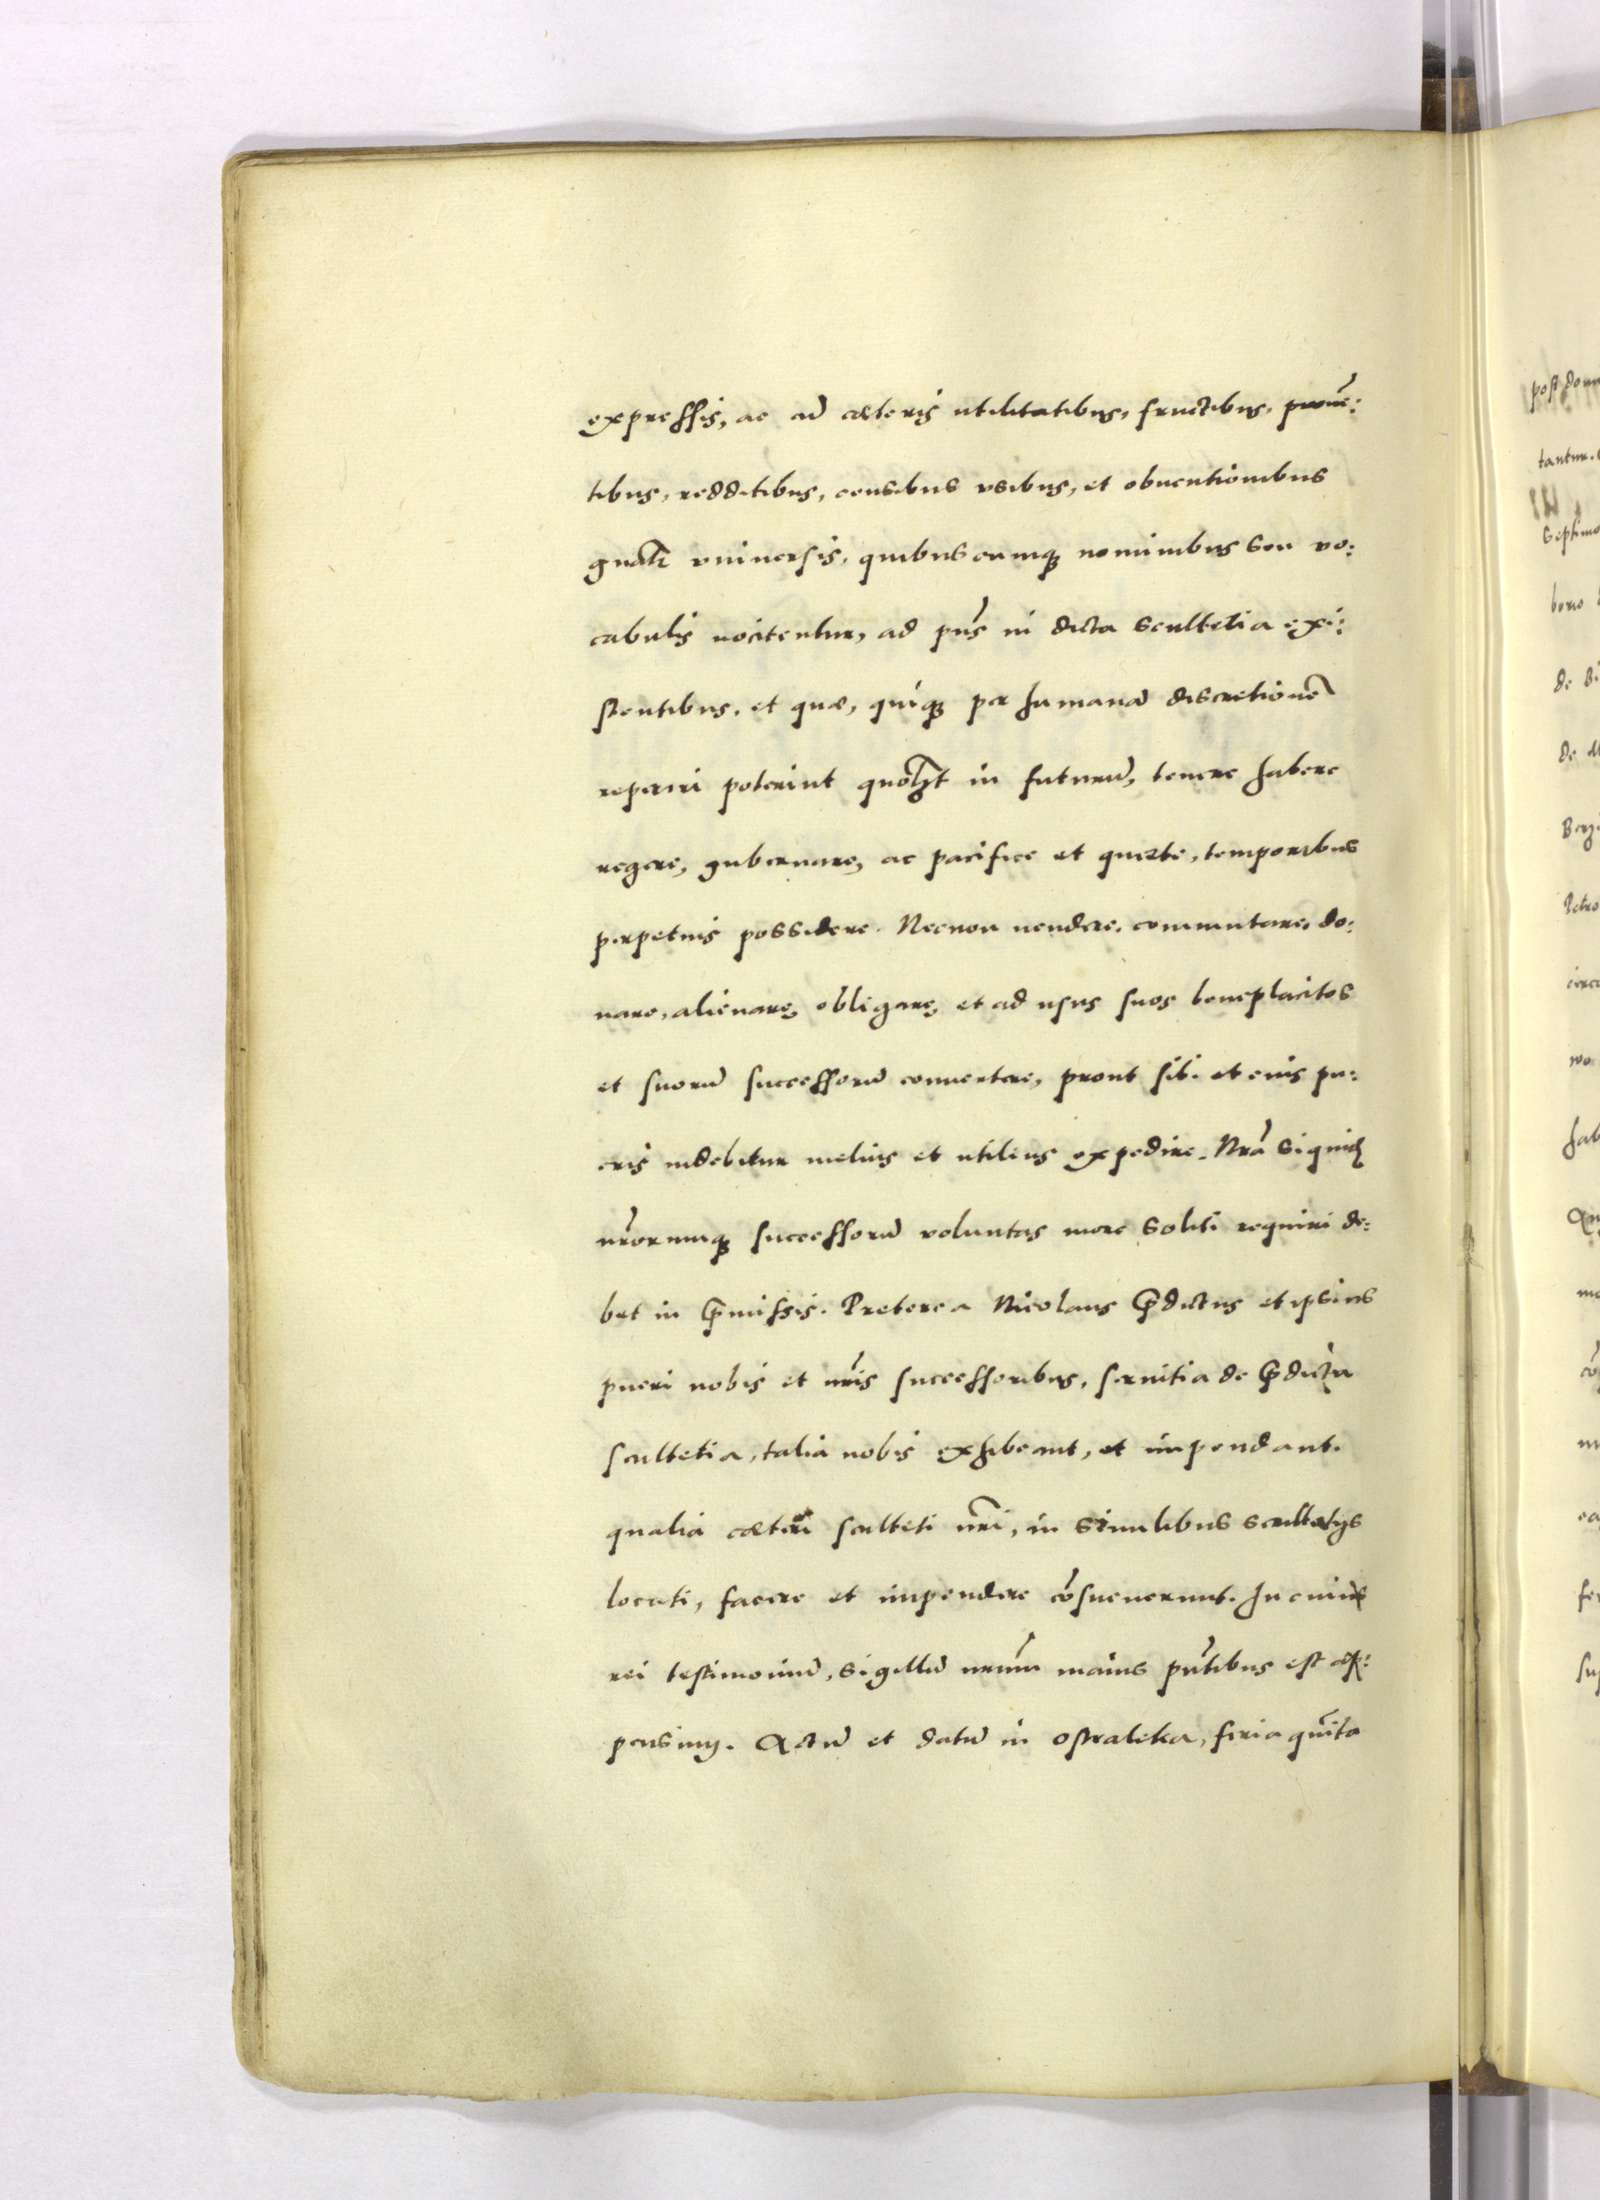 expressis, ac cũ cæteris utilitatibus, fructibus, prouẽ:
tibus, redditibus, censibus usibus, et obuentionibus
gnalr̃ vniuersis, quibuscumq; nominibus seu vo:
cabulis uocitentur, ad pñs in dicta scultetia exi:
stentibus, et quæ, quiq; per humanã discretionẽ
reperiri poterint quõlbt in futurũ, tenere habere
regere, gubernare, ac pacifice et quiete, temporibus
perpetuis possidere. Necnon uendere, commutare, do:
nare, alienare, obligare, et ad usus suos beneplacitos
et suorũ successorũ conuertere, prout sibi et eius pu:
eris uidebitur melius et utilius expedire. Nrã siquid
nrõrumq; successorũ voluntas more soliti requiri de:
bet in p̃missis. Preterea Nicolaus p̃dictus et ipsius
pueri nobis et nrĩs successoribus, seruitia de p̃dicta
scultetia, talia nobis exhibeant, et impendant.
qualia cæteri sculteti nrĩ, in similibus scultetijs
locati, facere et impendere cõsueuerunt. In cuius
rei testimoniũ, sigillũ nrũm maius pñtibus est ap:
pensum. Actũ et datũ in Ostraleka, feria quĩta